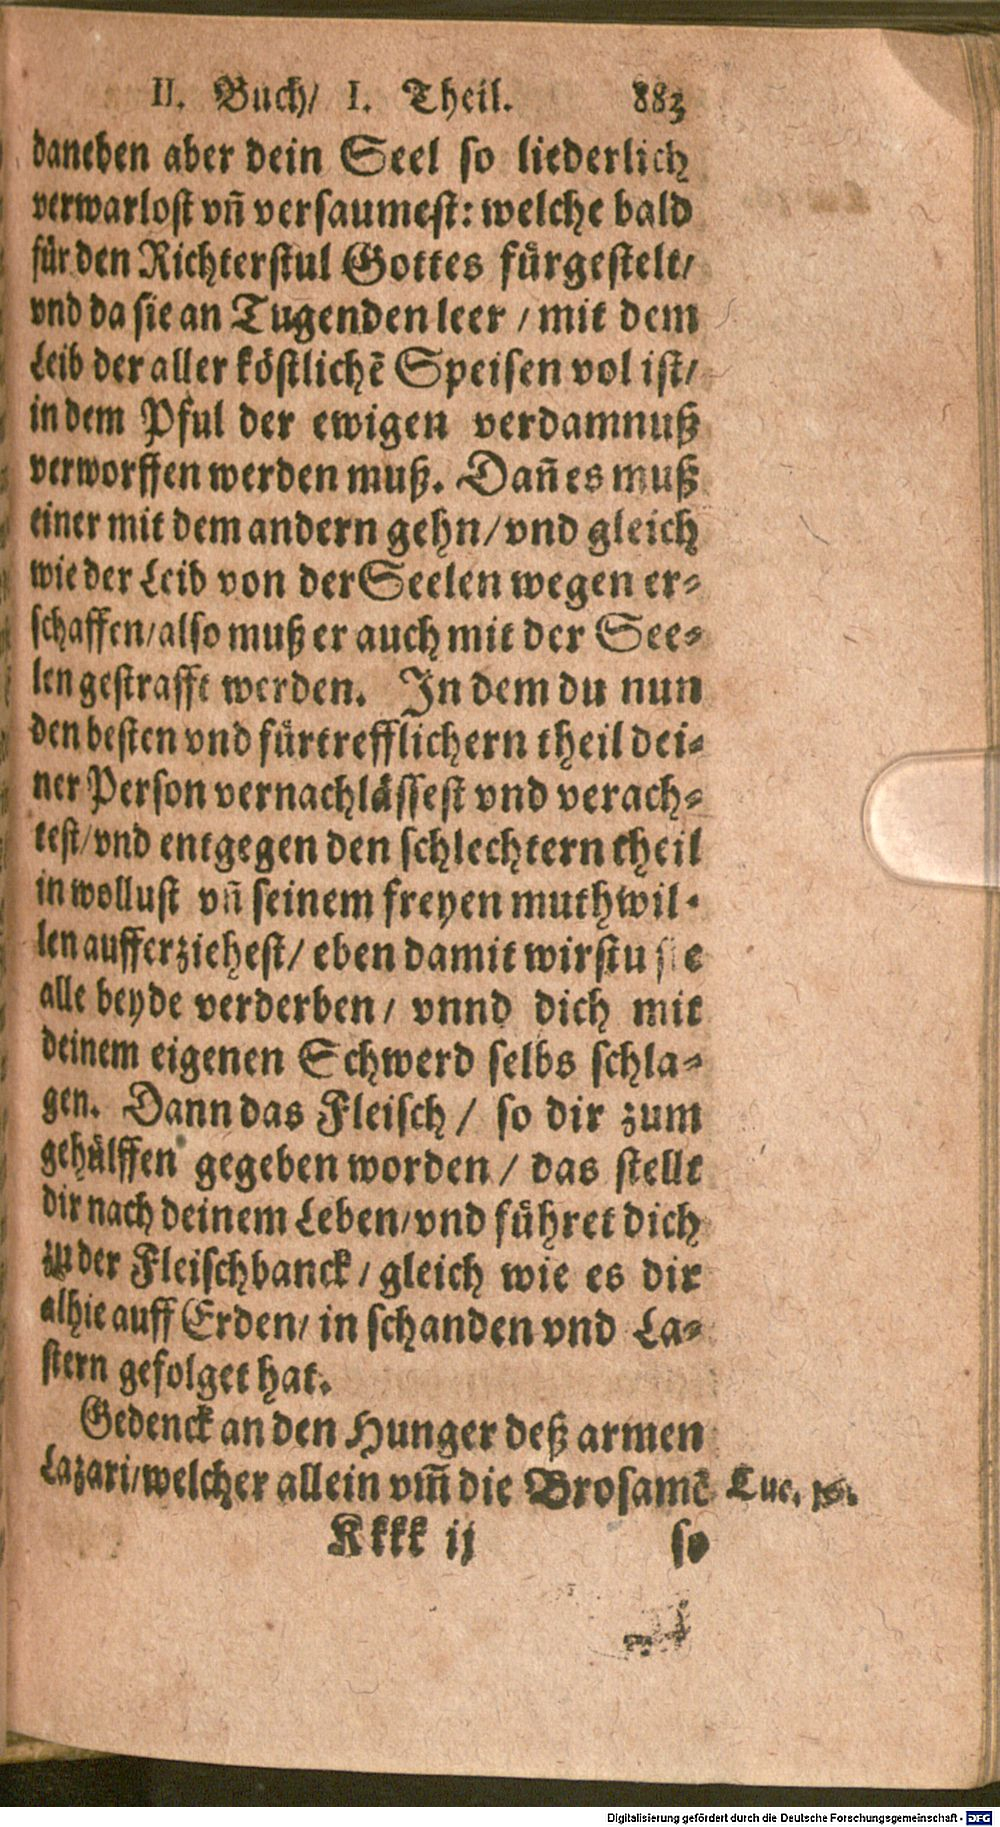 II. Buch/ I. Theil. 883
daneben aber dein Seel so liederlich
verwarlost vn̄ versaumest: welche bald
für den Richterstul Gottes fürgestelt/
vnd da sie an Tugenden leer / mit dem
Leib der aller köstlichē Speisen vol ist/
in dem Pful der ewigen verdamnuß
verworffen werden muß. Dan̄ es muß
einer mit dem andern gehn/ vnd gleich
wie der Leib von der Seelen wegen er-
schaffen/ also muß er auch mit der See-
len gestrafft werden. In dem du nun
den besten vnd fürtrefflichern theil dei-
ner Person vernachlässest vnd verach-
test/ vnd entgegen den schlechtern theil
in wollust vn̄ seinem freyen muthwil-
len aufferziehest/ eben damit wirstu sie
alle beyde verderben/ vnnd dich mit
deinem eigenen Schwerd selbs schla-
gen. Dann das Fleisch / so dir zum
gehülffen gegeben worden / das stellt
dir nach deinem Leben/ vnd führet dich
zu der Fleischbanck / gleich wie es dir
alhie auff Erden/ in schanden vnd La-
stern gefolget hat.
Gedenck an den Hunger deß armen
Lazari/ welcher allein vm̄ die Brosamē
Luc. 16.
Kkkk ij so
Digitalisierung gefördert durch die Deutsche Forschungsgemeinschaft - DFG